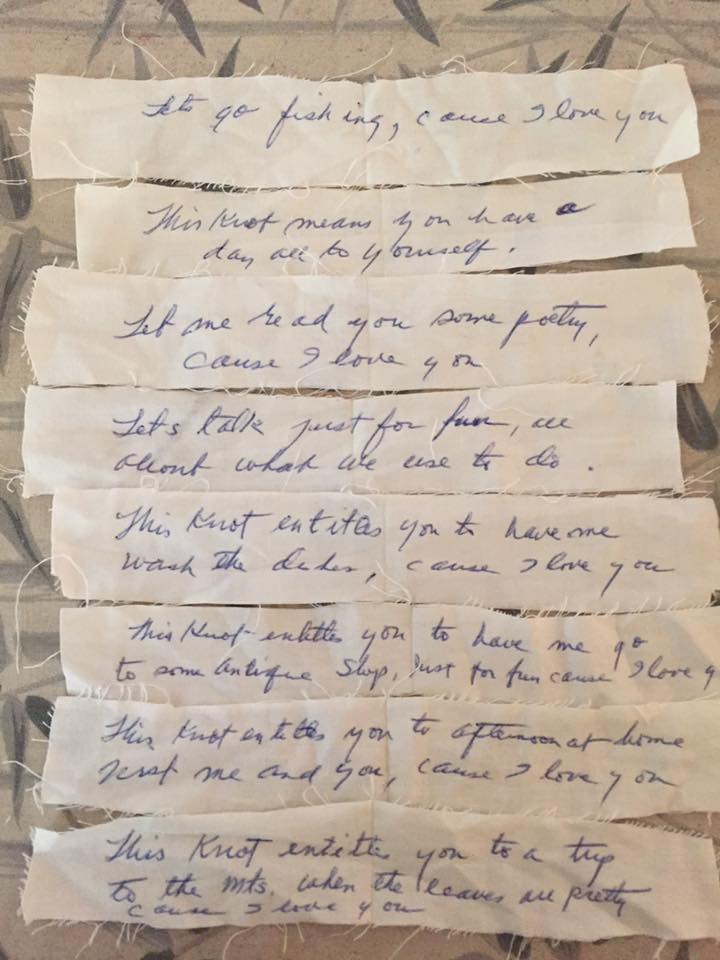 Lets go fishing, cause I love you
This Knot means you have a
day all to yourself.
Let me read you some poetry,
cause I love you
Let's talk just for fun, all
about what we use to do.
This Knot entitles you to have me
wash the dishes, cause I love you
This Knot entitles you to have me go
to some Antique Shop, Just for fun cause I love y
This Knot entitles you to afternoon at home
Just me and you, cause I love you
This Knot entitles you to a trip
to the Mts. when the leaves are pretty
cause I love you